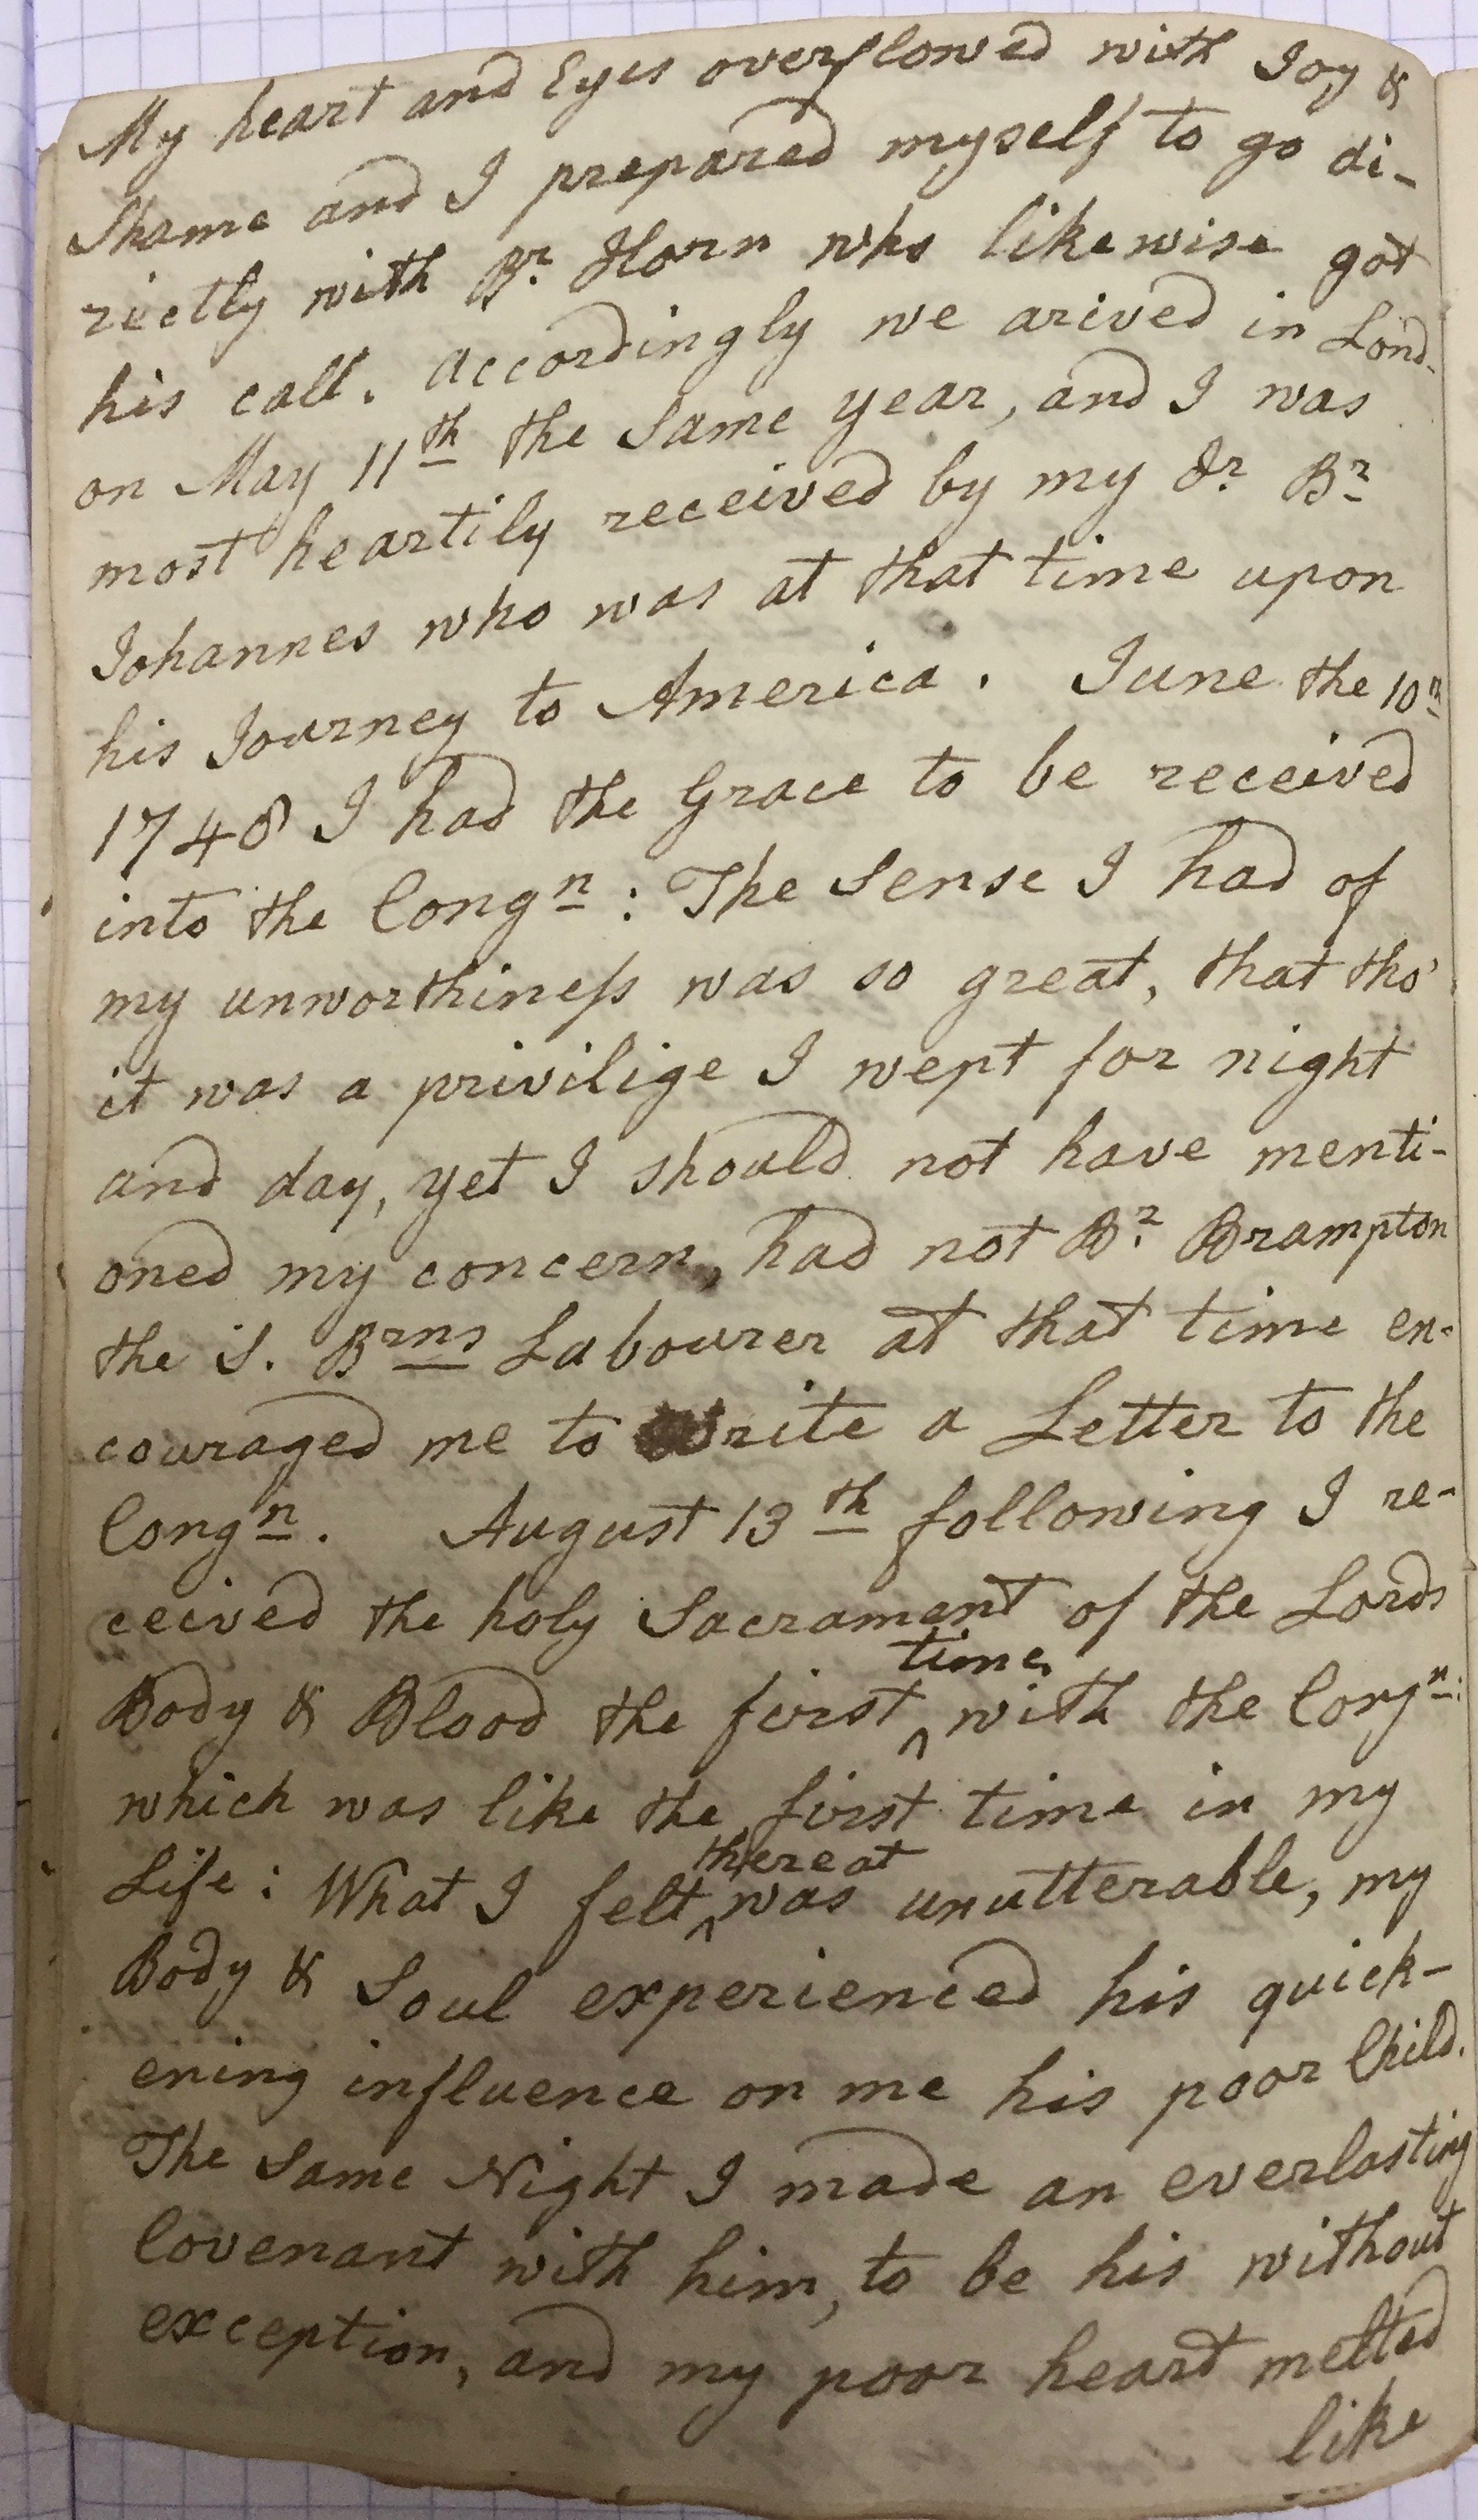 My heart and Eyes overflowed with Joy &
Shame and I prepared myself to go di-
rectly with Br. Horn who likewise got
his call. accordingly we arived in Lond-
on May 11th the Same year, and I was
most heartily received by my dr. Br
Johannes who was at that time upon
his Journey to America. June the 10th
1748 I had the Grace to be received
into the Congn: The Sense I had of
my unworthiness was so great, that tho'
it was a privilige I wept for night
and day, yet I should not have menti-
oned my concern, had not Br. Brampton
the S. Brns Labourer at that time en-
couraged me to Write a Letter to the
Congn. August 13th following I re-
ceived the holy Sacrament of the Lords
Body & Blood the first time with the Congn:
which was like the first time in my
Life: What I felt thereat was unutterable, my
Body & Soul experienced his quick-
ening influence on me his poor Child.
The Same Night I made an everlasting
Covenant with him, to be his without
exception, and my poor heart melted
like